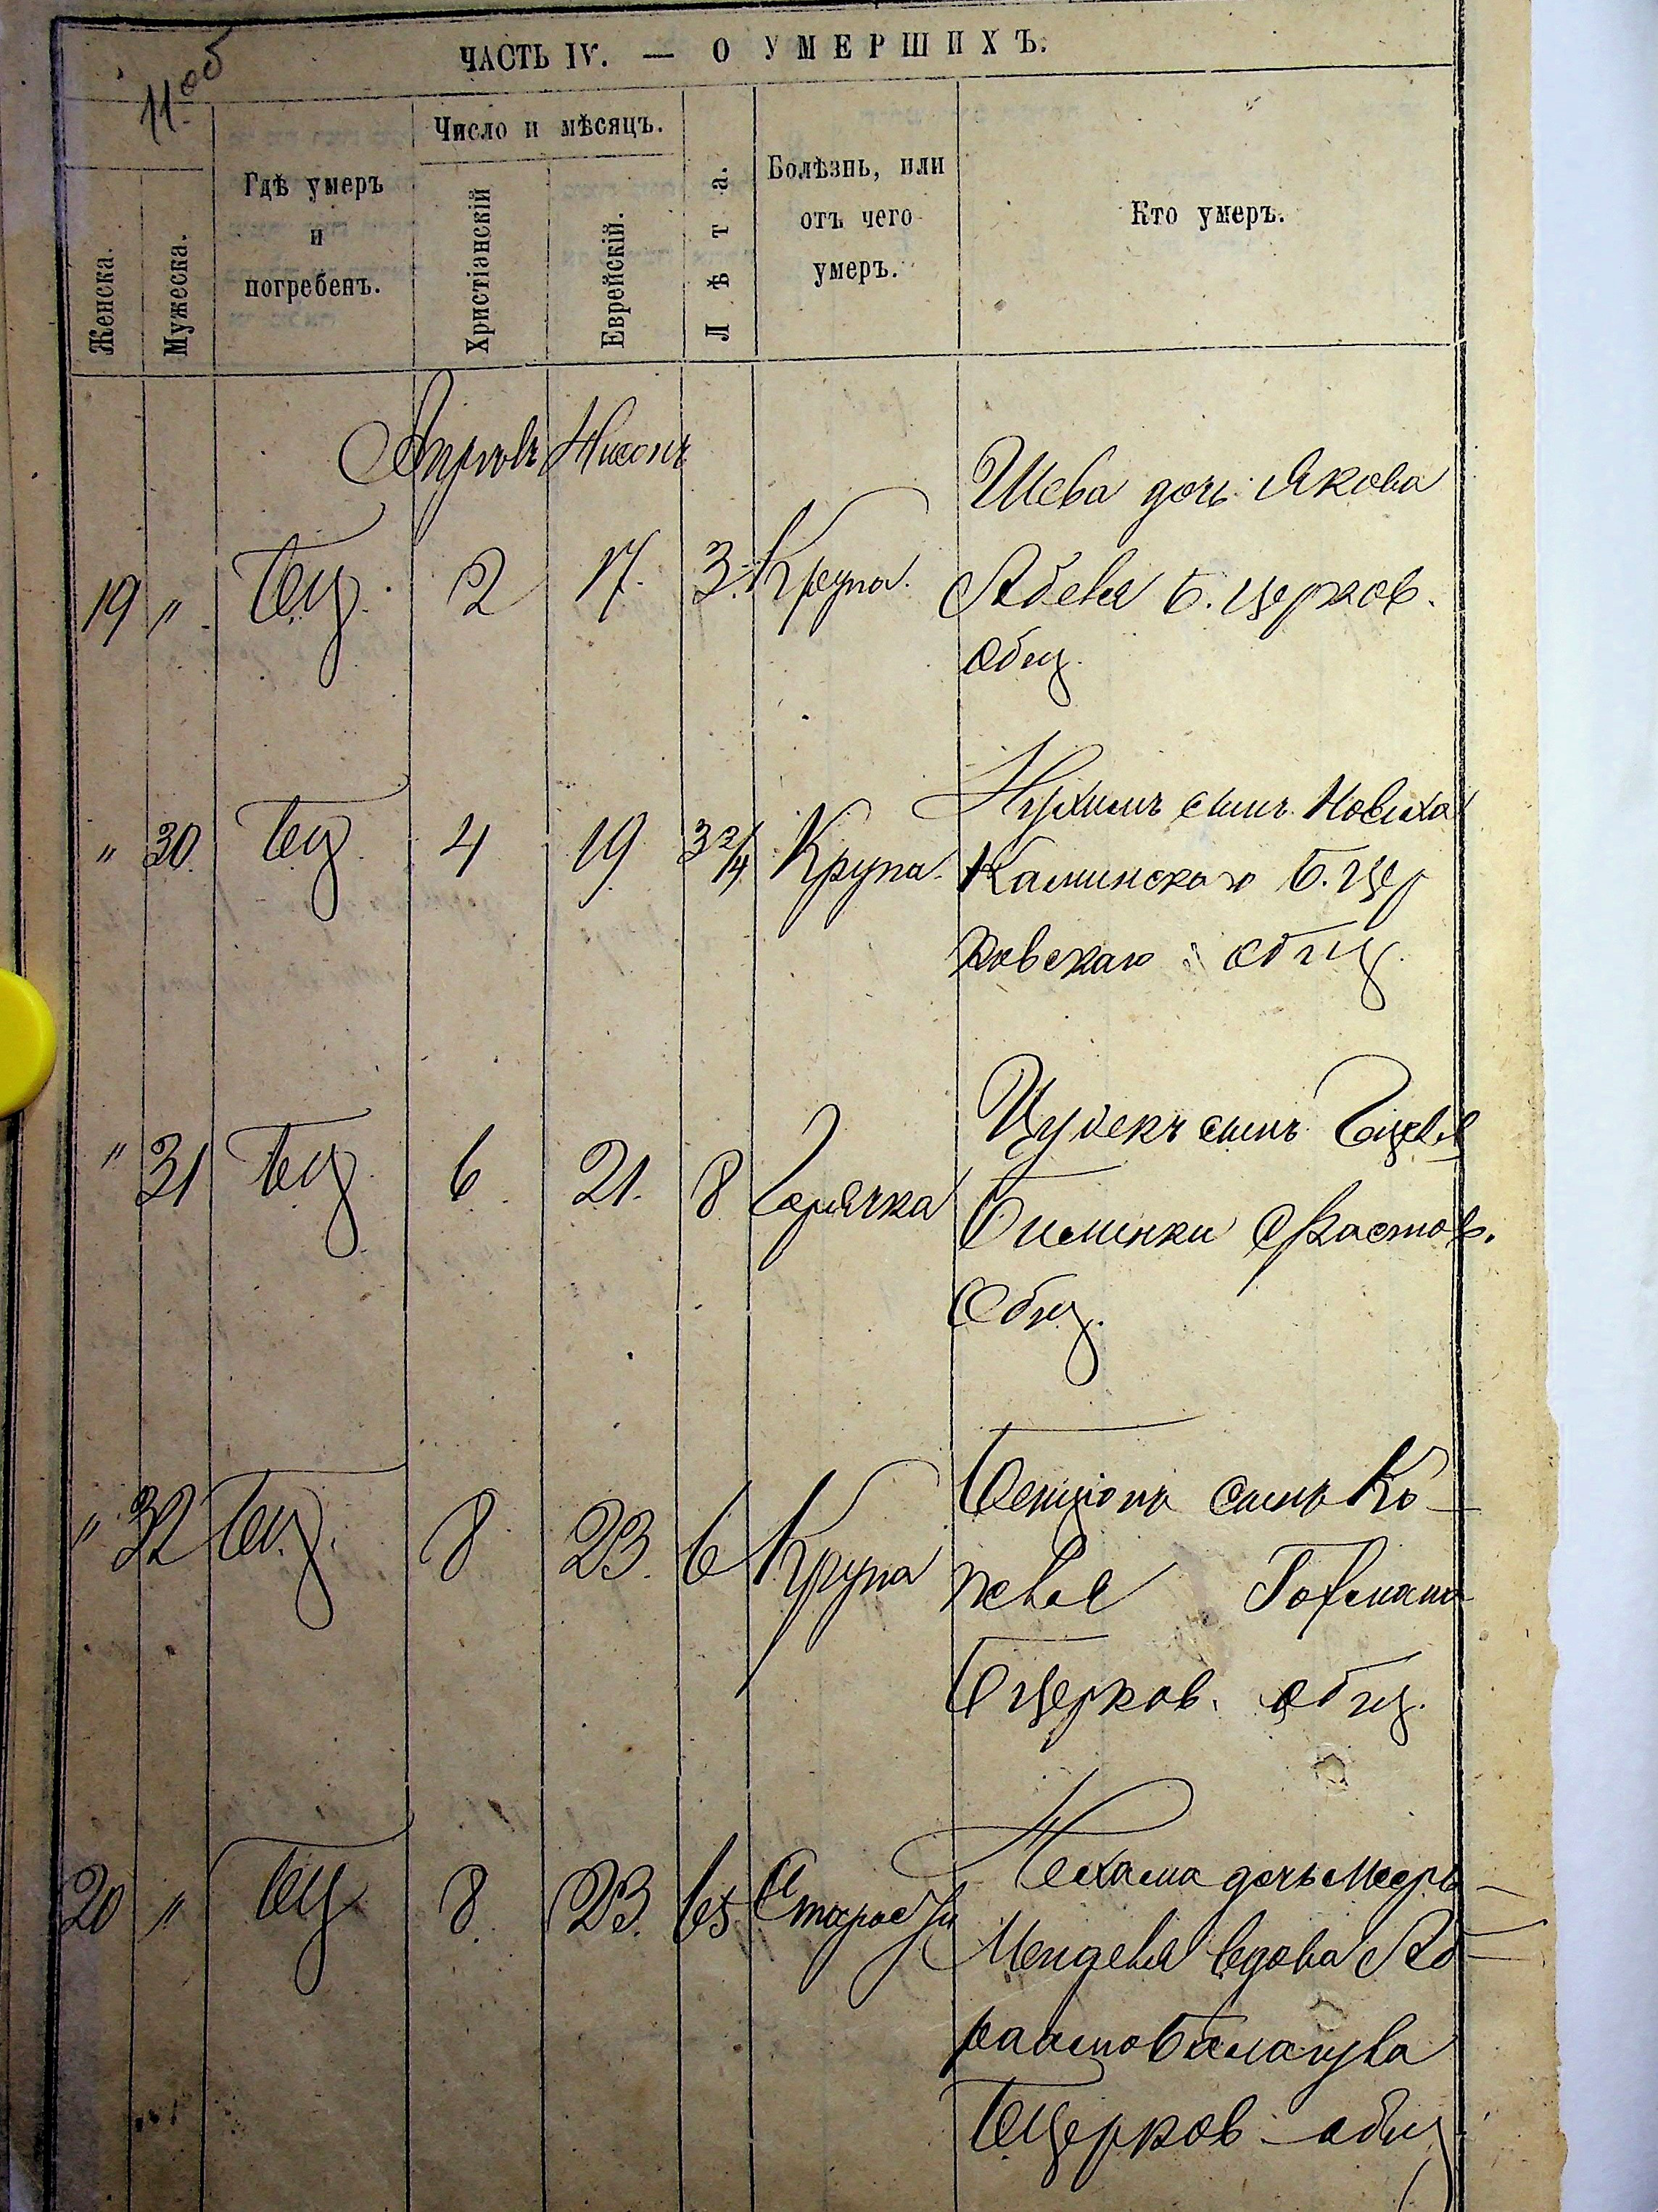 11 об
ЧАСТЬ IV. — О УМЕРШИХЪ.
Женска.
Мужеска.
Гдѣ умеръ
и
погребенъ.
Число и мѣсяцъ.
Христіанскій
Еврейскій.
Лѣта.
Болѣзнь, или
отъ чего
умеръ.
Кто умеръ.
Апрель Нисонъ
19 " БЦ. 2 17. 3. Крупа.
Шева дочь Якова
Абевя Б. церков.
общ.
" 30. БЦ. 4 19 3 2/4 Крупа.
Нухимъ сынъ
Каминского Б. Цер
ковскаго общ.
" 31 БЦ 6. 21. 8 Горячка
сынъ
Фастов.
Общ.
" 32 БЦ. 8 23. 6 Крупа
Бенціонъ сынъ Ко-
певля Гофмана
БЦерков. общ.
20 " БЦ 8. 23. 65 Старости
Нехама дочь Меера
Менделя вдова Аб-
рама
БЦерков общ